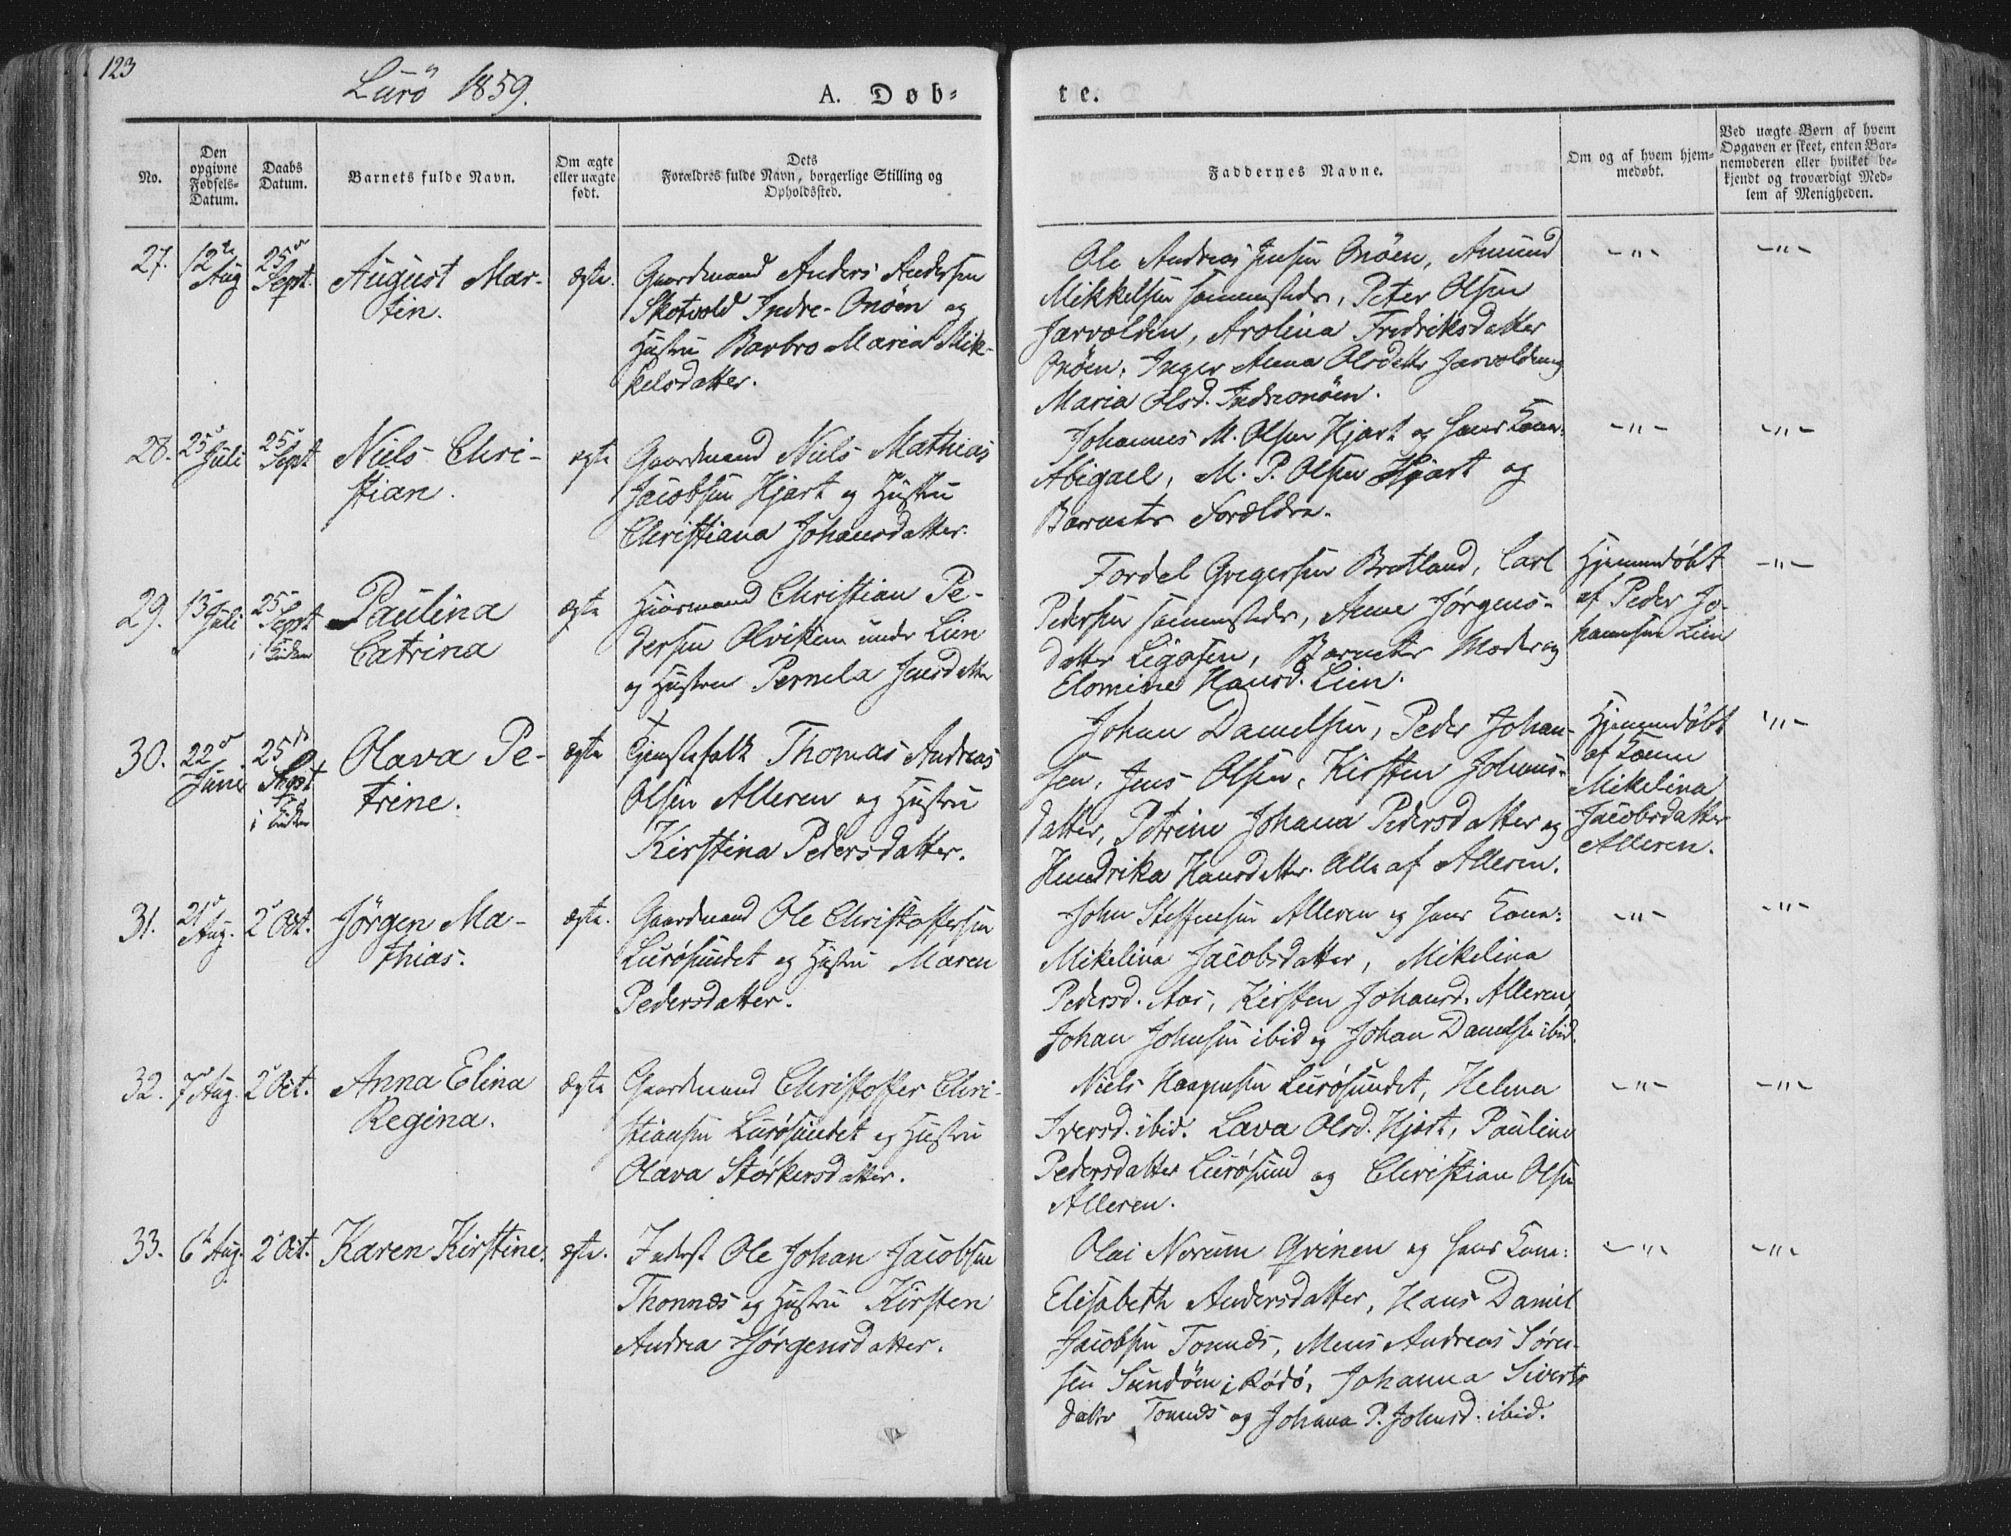 123
Lurö 1859.
A. Døb-
te.
No.
Den opgivne Fødsels-Datum.
Daabs Datum.
Barnets fulde Navn.
Om ægte eller uægte født.
Dets
Forældres fulde Navn, borgerlige Stilling og
Opholdssted.
Faddernes Navne.
Om og af hvem hjem-
medøbt.
Ved uægte Børn af hvem
Opgaven er skeet, enten Bar-
nemoderen eller hvilket be-
kjendt og troværdigt Med-
lem af Menigheden.
27.
12te
Aug
25de
Sept.
August Mar-
tin.
ægte.
Gaardmand Anders Andersen
Skotvold Indre-Onöen og
Hustru Barbro Maria Mik-
kelsdatter.
Ole Andreas Jensen Onöen, Amund
Mikkelsen sammesteds, Peter Olsen
Jarvolden, Arolina Fredriksdatter
Onöen, Inger Anna Olsdatter Jarvolden og
Maria Olsd. Indreonöen.
-"-
-"-
28.
25de
Juli
25de
Sept
Niels Chri-
stian.
ægte
Gaardmand Niels Mathias
Jacobsen Hjart og Hustru
Christiana Johansdatter.
Johannes M. Olsen Hjart og hans Kone:
Abigael, M. P. Olsen Hjart og
Barnets Forældre.
-"-
-"-
29.
13
Juli
25
Sept
i Kirken
Paulina
Catrina
ægte
Huusmand Christian Pe-
dersen Olviken under Lien
og Hustru Pernela Jensdatter
Fordel Gregersen Bratland, Carl
Pedersen sammesteds, Anne Jørgens-
datter Ligosen, Barnets Moder og
Elomine Hansd. Lien.
Hjemmedøbt
af Peder Jo-
hannsen Lien
-"-
30.
22de
Juni
25de
Sept
i Kirken
Olava Pe-
trine.
ægte
Tjenstefolk Thomas Andreas
Olsen Alleren og Hustru
Kirstina Pedersdatter.
Johan Danielsen, Peder Johan-
sen, Jens Olsen, Kirsten Johans-
datter, Petrine Johana Pedersdatter og
Hendrika Hansdatter. Alle af Alleren.
Hjemmedøbt
af Konen
Mikelina
Jacobsdatter
Alleren.
-"-
31.
21de
Aug.
2 Oct.
Jörgen Ma-
thias.
ægte.
Gaardmand Ole Christoffersen
Lurösundet og Hustru Maren
Pedersdatter.
John Steffensen Alleren og hans Kone:
Mikelina Jacobsdatter, Mikelina
Pedersd. Aas, Kirsten Johansd. Alleren,
Johan Johnsen ibid og Johan Danielsen ibid.
-"-
-"-
32.
7 Aug.
2 Oct.
Anna Elina
Regina.
ægte
Gaardmand Christoffer Chri-
stiansen Lurösundet og Hustru
Olava Störkersdatter.
Niels Haagensen Lurösundet, Helena
Iversd. ibid. Lava Olsd. Hjart, Pauline
Pedersdatter Lurösund og Christian Olsen
Alleren.
-"-
-"-
33.
6 Aug.
2 Oct.
Karen Kirstine.
ægte.
Inderst Ole Johan Jacobsen
Thonnæs og Hustru Kirsten
Andrea Jörgensdatter.
Olai Norum Qvinen og hans Kone:
Elisabeth Andersdatter, Hans Daniel
Jacobsen Tonnæs, Mens Andreas Sören-
sen Sundöen i Rödö, Johanna Siverts-
datter Tonnæs og Johana P. Johnsd. ibid.
-"-
-"-